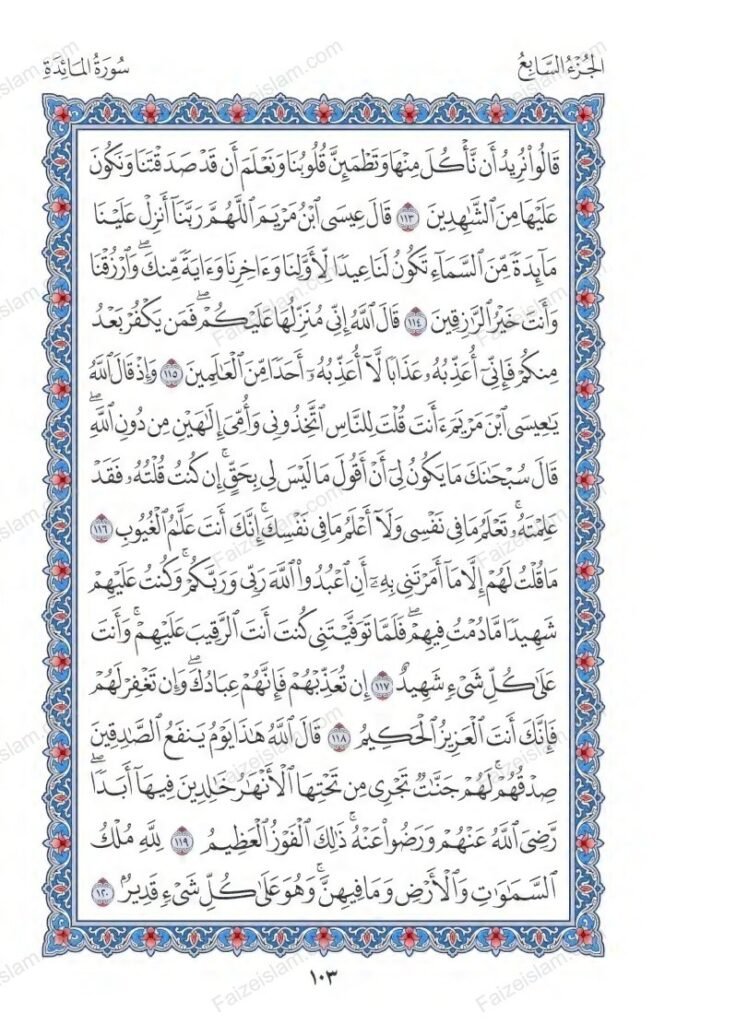 الجُزْءُ السَّابِعُ
سُورَةُ المَائِدَةِ
قَالُواْ نُرِيدُ أَن نَّأۡكُلَ مِنۡهَا وَتَطۡمَئِنَّ قُلُوبُنَا وَنَعۡلَمَ أَن قَدۡ صَدَقۡتَنَا وَنَكُونَ
عَلَيۡهَا مِنَ ٱلشَّٰهِدِينَ ١١٣ قَالَ عِيسَى ٱبۡنُ مَرۡيَمَ ٱللَّهُمَّ رَبَّنَآ أَنزِلۡ عَلَيۡنَا
مَآئِدَةٗ مِّنَ ٱلسَّمَآءِ تَكُونُ لَنَا عِيدٗا لِّأَوَّلِنَا وَءَاخِرِنَا وَءَايَةٗ مِّنكَۖ وَٱرۡزُقۡنَا
وَأَنتَ خَيۡرُ ٱلرَّٰزِقِينَ ١١٤ قَالَ ٱللَّهُ إِنِّي مُنَزِّلُهَا عَلَيۡكُمۡۖ فَمَن يَكۡفُرۡ بَعۡدُ
مِنكُمۡ فَإِنِّيٓ أُعَذِّبُهُۥ عَذَابٗا لَّآ أُعَذِّبُهُۥٓ أَحَدٗا مِّنَ ٱلۡعَٰلَمِينَ ١١٥ وَإِذۡ قَالَ ٱللَّهُ
يَٰعِيسَى ٱبۡنَ مَرۡيَمَ ءَأَنتَ قُلۡتَ لِلنَّاسِ ٱتَّخِذُونِي وَأُمِّيَ إِلَٰهَيۡنِ مِن دُونِ ٱللَّهِۖ
قَالَ سُبۡحَٰنَكَ مَا يَكُونُ لِيٓ أَنۡ أَقُولَ مَا لَيۡسَ لِي بِحَقٍّۚ إِن كُنتُ قُلۡتُهُۥ فَقَدۡ
عَلِمۡتَهُۥۚ تَعۡلَمُ مَا فِي نَفۡسِي وَلَآ أَعۡلَمُ مَا فِي نَفۡسِكَۚ إِنَّكَ أَنتَ عَلَّٰمُ ٱلۡغُيُوبِ ١١٦
مَا قُلۡتُ لَهُمۡ إِلَّا مَآ أَمَرۡتَنِي بِهِۦٓ أَنِ ٱعۡبُدُواْ ٱللَّهَ رَبِّي وَرَبَّكُمۡۚ وَكُنتُ عَلَيۡهِمۡ
شَهِيدٗا مَّا دُمۡتُ فِيهِمۡۖ فَلَمَّا تَوَفَّيۡتَنِي كُنتَ أَنتَ ٱلرَّقِيبَ عَلَيۡهِمۡۚ وَأَنتَ
عَلَىٰ كُلِّ شَيۡءٖ شَهِيدٌ ١١٧ إِن تُعَذِّبۡهُمۡ فَإِنَّهُمۡ عِبَادُكَۖ وَإِن تَغۡفِرۡ لَهُمۡ
فَإِنَّكَ أَنتَ ٱلۡعَزِيزُ ٱلۡحَكِيمُ ١١٨ قَالَ ٱللَّهُ هَٰذَا يَوۡمُ يَنفَعُ ٱلصَّٰدِقِينَ
صِدۡقُهُمۡۚ لَهُمۡ جَنَّٰتٞ تَجۡرِي مِن تَحۡتِهَا ٱلۡأَنۡهَٰرُ خَٰلِدِينَ فِيهَآ أَبَدٗاۖ
رَّضِيَ ٱللَّهُ عَنۡهُمۡ وَرَضُواْ عَنۡهُۚ ذَٰلِكَ ٱلۡفَوۡزُ ٱلۡعَظِيمُ ١١٩ لِلَّهِ مُلۡكُ
ٱلسَّمَٰوَٰتِ وَٱلۡأَرۡضِ وَمَا فِيهِنَّۚ وَهُوَ عَلَىٰ كُلِّ شَيۡءٖ قَدِيرُۢ ١٢٠
١٠٣
Faizeislam.com